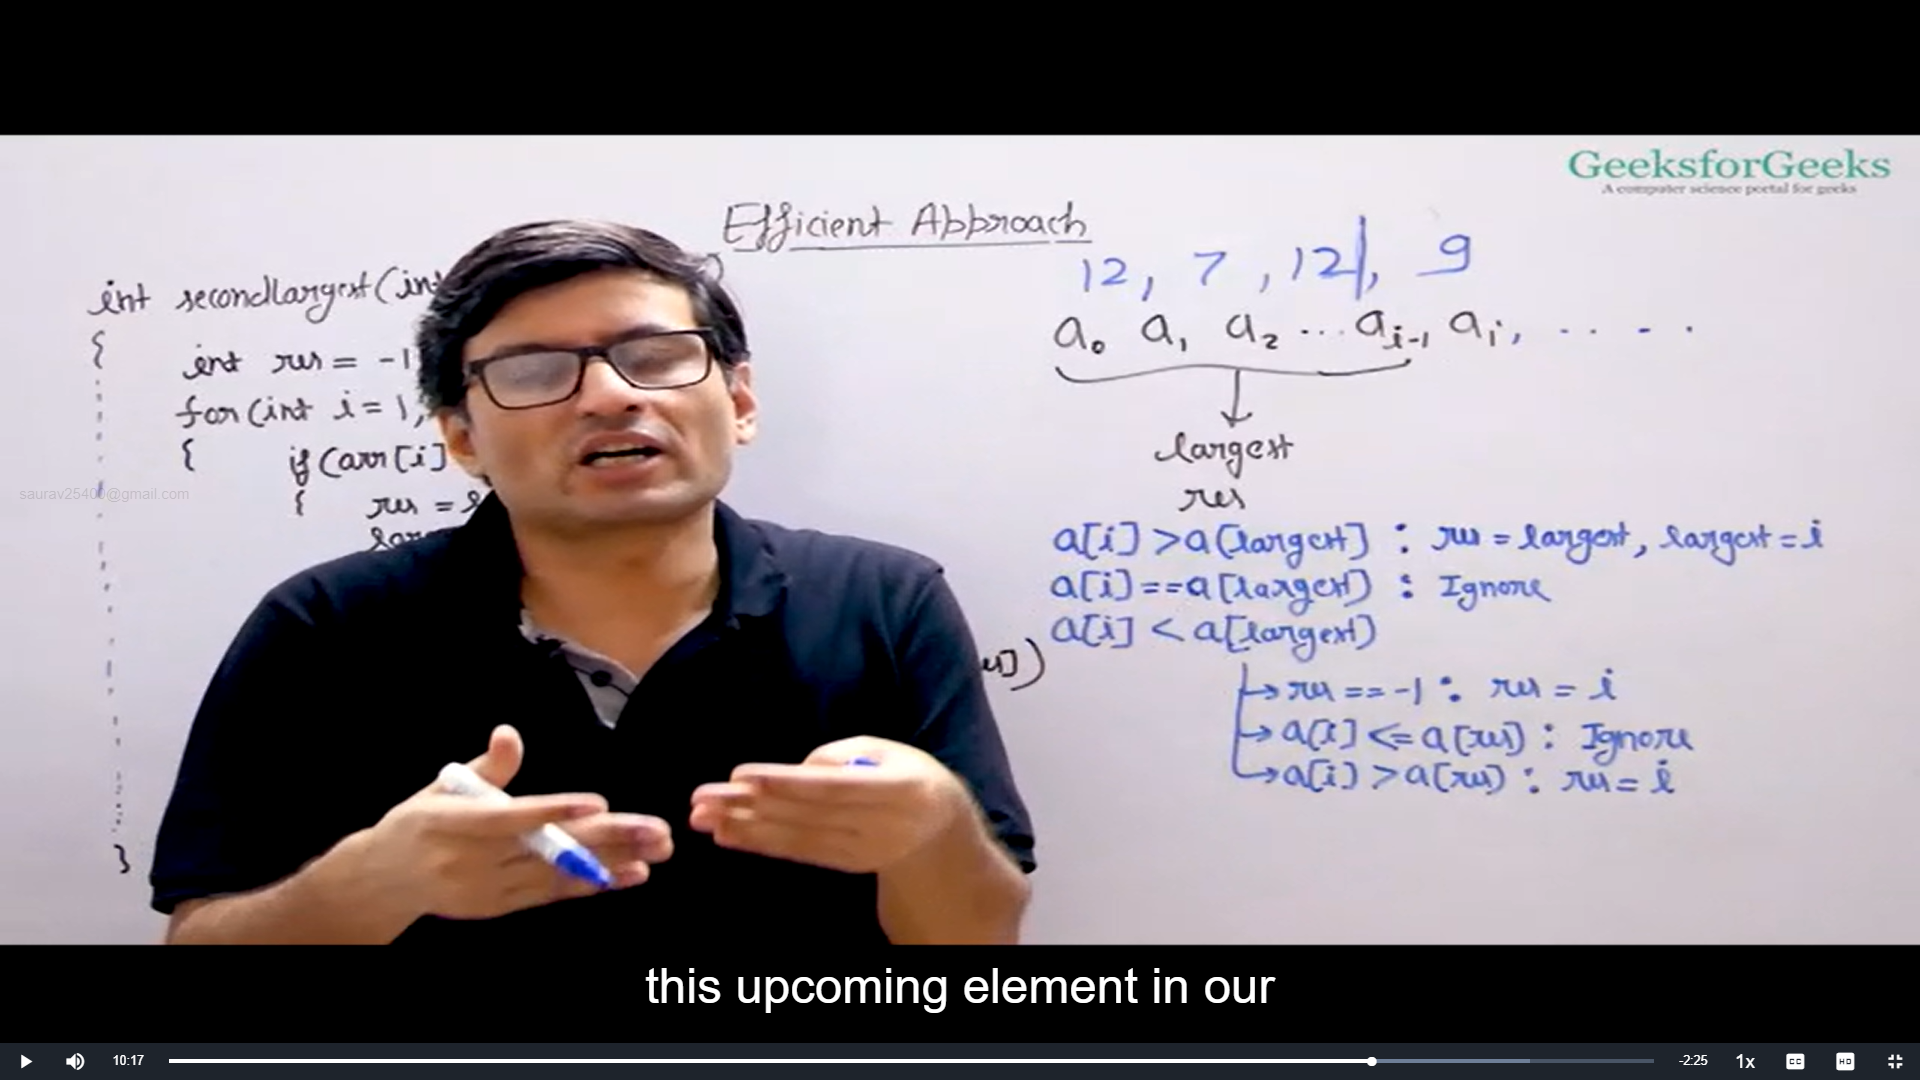 GeeksforGeeks
A computer science portal for geeks
Efficient Approach
int secondlargest(int
{
int res = -1
for(int i=1,
{ if(arr[i]
{ res =
}
12, 7, 12|, 9
a₀ a₁ a₂ ... aᵢ₋₁ aᵢ, . . . .
largest
res
a[i] > a[largest] : res = largest, largest = i
a[i] == a[largest] : Ignore
a[i] < a[largest]
→ res == -1 : res = i
→ a[i] <= a[res] : Ignore
→ a[i] > a[res] : res = i
saurav25400@gmail.com
this upcoming element in our
10:17
-2:25
1x
CC
HD